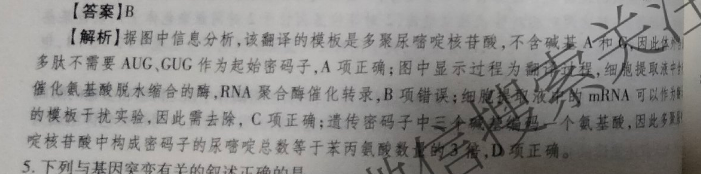 【答案】B
【解析】据图中信息分析,该翻译的模板是多聚尿嘧啶核苷酸,不含碱基A和G,因此体外
多肽不需要 AUG、GUG 作为起始密码子,A 项正确;图中显示过程为翻译过程,细胞提取液中
催化氨基酸脱水缩合的酶,RNA 聚合酶催化转录,B 项错误;细胞提取液中的 mRNA 可以作为
的模板干扰实验,因此需去除, C 项正确;遗传密码子中三个碱基编码一个氨基酸,因此多聚
啶核苷酸中构成密码子的尿嘧啶总数等于苯丙氨酸数量的3倍,D 项正确。
5. 下列与基因突变有关的叙述正确的是